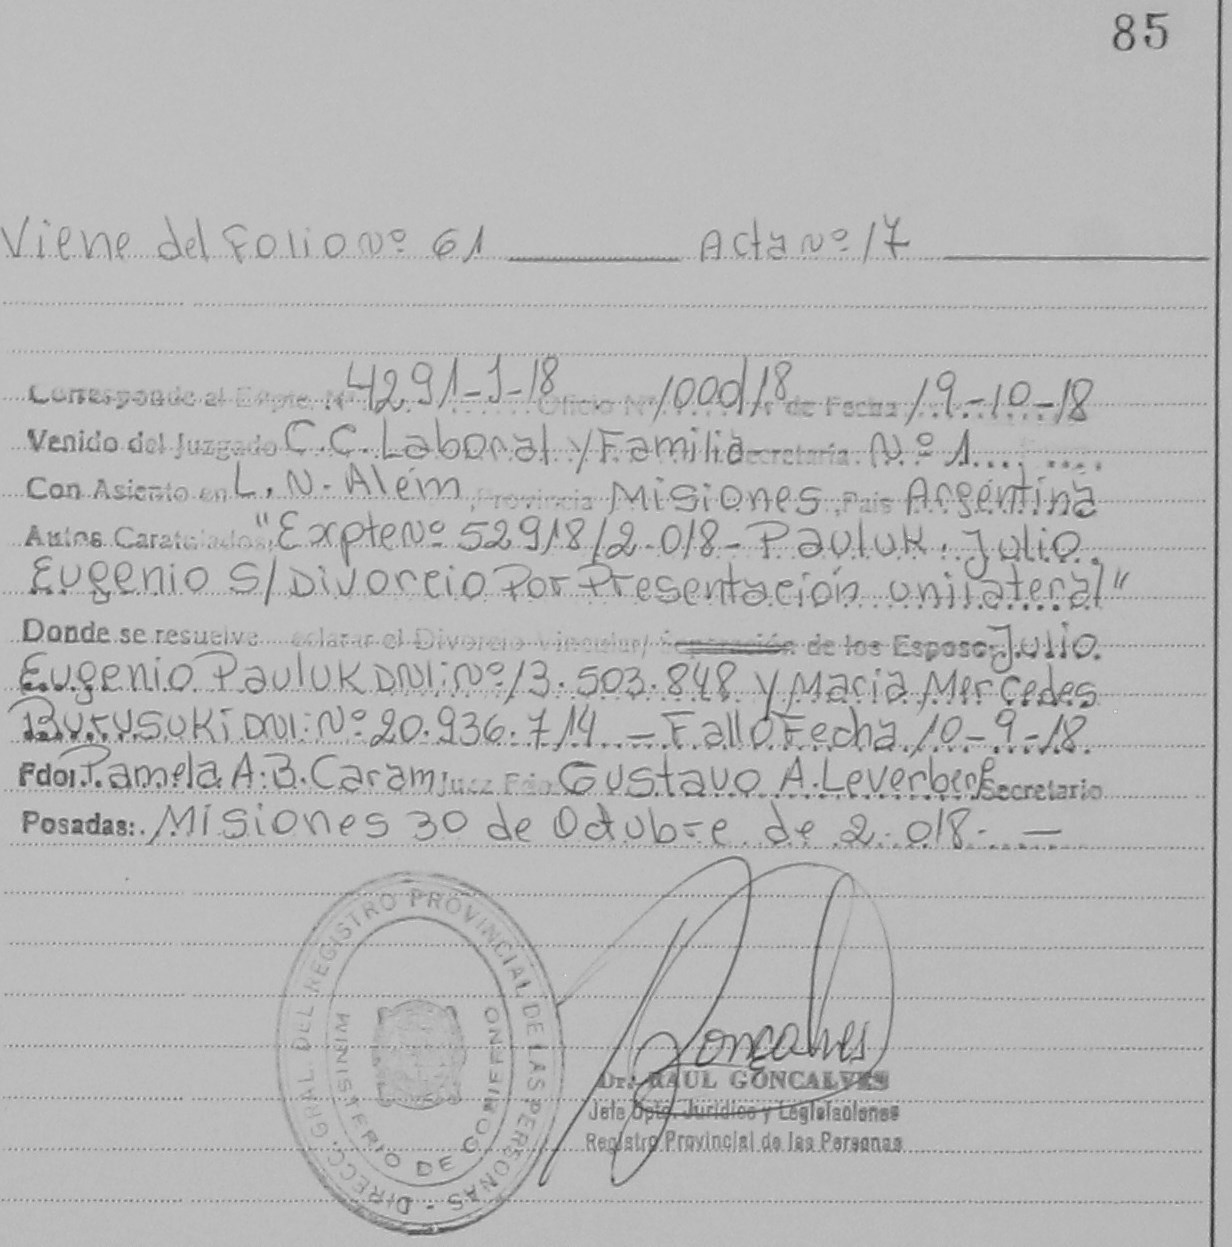 85
Viene del Folio Nº 61 Acta Nº 17
Corresponde al Expte. Nº 4291-J-18 Oficio Nº 1000/18 de Fecha 19-10-18
Venido del Juzgado C.C. Laboral y Familia Secretaria Nº 1
Con Asiento en L. N. Alem, Provincia Misiones, Pais Argentina
Autos Caratulados "Expte Nº 52918/2.018 - Pauluk, Julio
Eugenio S/ Divorcio Por Presentación unilateral"
Donde se resuelve declarar el Divorcio Vincular/ Separación de los Esposo: Julio
Eugenio Pauluk DNI: Nº 13.503.848 y Maria Mercedes
Burusuki DNI: Nº 20.936.714 - Fallo Fecha 10-9-18
Fdo: Pamela A.B. Caram Juez Fdo Gustavo A. Leverberg Secretario
Posadas: Misiones 30 de Octubre de 2.018. —
DIRECC. GRAL. DEL REGISTRO PROVINCIAL DE LAS PERSONAS -
MINISTERIO DE GOBIERNO
Goncalves
Dr. RAUL GONCALVES
Jefe Dpto. Juridico y Legislaciones
Registro Provincial de las Personas